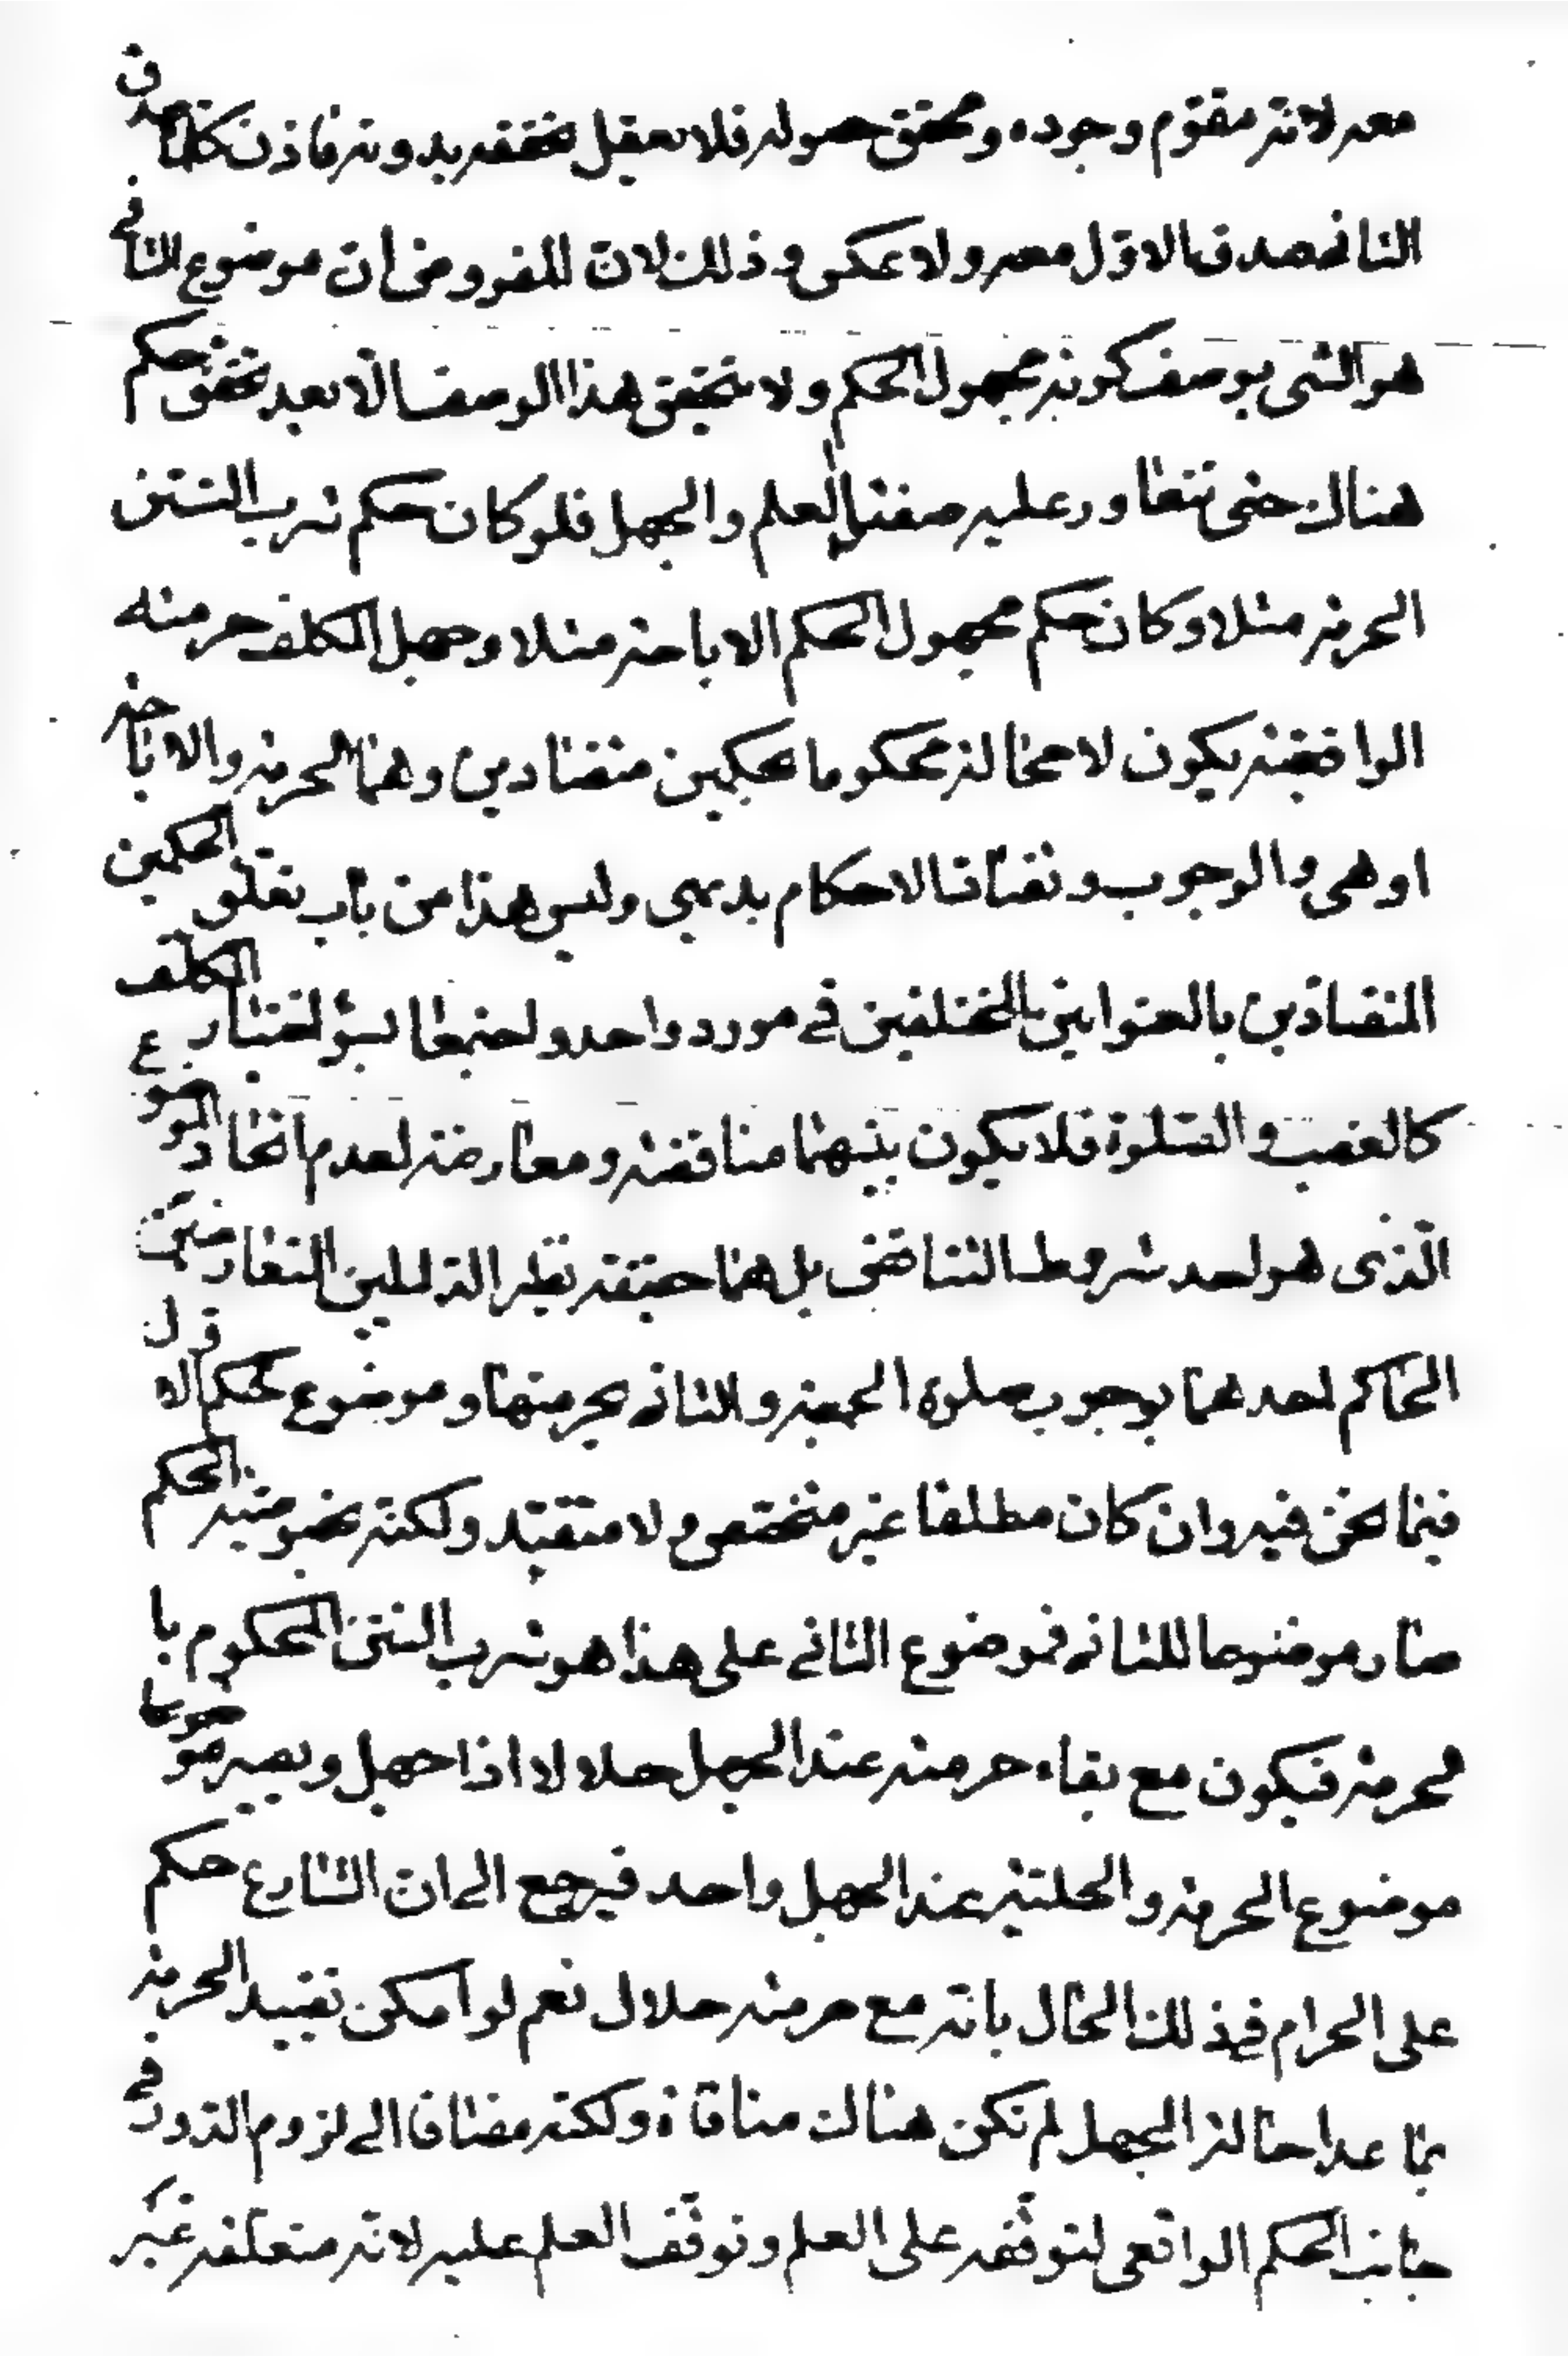 معه لانه مقوم وجوده ومحقق حصوله فلا يعقل تحققه بدونه فاذن كلما صدق
الثاني صدق الاول معه ولا عكس وذلك لان المفروض ان موضوع الثاني
هو الشي بوصف كونه مجهول الحكم ولا يتحقق هذا الوصف الا بعد تحقق حكم
هناك حتى تتعاور عليه صفتا العلم والجهل فلو كان حكم شرب التتن
الحرمة مثلا وكان حكم مجهول الحكم الاباحة مثلا وجهل المكلف حرمته
الواقعية يكون لا محالة محكوما بحكمين متضادين وهما الحرمة والاباحة
او هي والوجوب وتضاد الاحكام بديهي وليس هذا من باب تعلق الحكمين
المتضادين بالعنوانين المختلفين في مورد واحد واجتمعا بسوء اختيار المكلف
كالغصب والصلوة فلا يكون بينهما مناقضة ومعارضة لعدم اتحاد الموضوع
الذي هو احد شروط التناقض بل هما حقيقة نظير الدليلين المتعارضين
الحاكم احدهما بوجوب صلوة الجمعة والثاني بحرمتها وموضوع الحكم الاول
فيما نحن فيه وان كان مطلقا غير متخصص ولا متقيد ولكنه بخصوصية الحكم
صار موضوعا للثاني فموضوع الثاني على هذا هو شرب التتن المحكوم با
لحرمة فيكون مع بقاء حرمته عند الجهل حلالا اذا جهل ويصير موضوعا
موضوع الحرمة والحلية عند الجهل واحد فيرجع الى ان الشارع حكم
على الحرام في ذلك الحال بانه مع حرمته حلال نعم لو امكن تقييد الحرمة
بما عدا حالة الجهل لم تكن هناك منافاة ولكنه مضافا الى لزوم الدور في
جانب الحكم الواقعي لتوقفه على العلم وتوقف العلم عليه لانه متعلقه غير